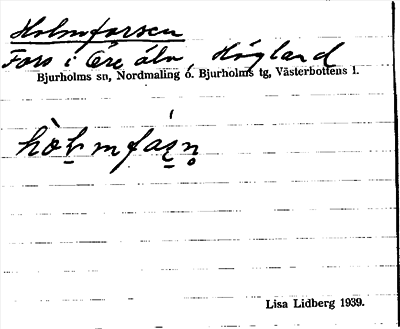 Holmforsen
Fors i Öre älv, Högland
Bjurholms sn, Nordmaling o. Bjurholms tg, Västerbottens l.
Lisa Lidberg 1939.